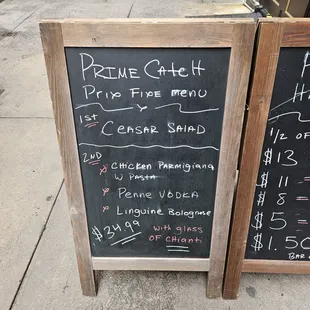 PRIME CATCH
PRIX FIXE MENU
1st
CEASAR SALAD
2ND
CHICKEN PARMIGIANA
W PASTA
PENNE VODKA
LINGUINE BOLOGNESE
$34.99 with glass
OF CHIANTI
P
H
1/2 OF
$13
$11 =
$8 =
$5 =
$1.50
BAR